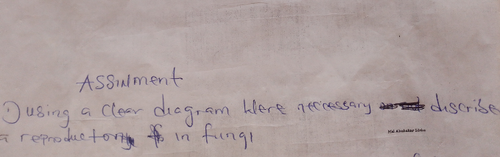 ASSINMENT
1) using a clear diagram where necessary discribe
a reproductory in fungi